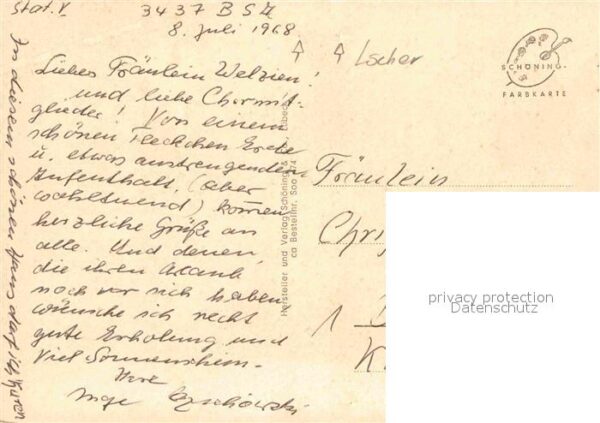 Stat. V
3437 BSA
8. Juli 1968
Liebes Fräulein Welzien!
und liebe Chormit-
glieder! Von einem
schönen Fleckchen Erde
u. etwas anstrengendem
Aufenthalt, (aber
wohltuend) kommen
herzliche Grüße an
alle. Und denen,
die ihren Urlaub
noch vor sich haben
wünsche ich recht
gute Erholung und
viel Sonnenschein.
Ihre
Inge
In diesem schönen Haus darf ich kuren
Hersteller und Verlag Schöning &
Bestellnr. Soo
Lscher
SCHÖNING
FARBKARTE
Fräulein
Chri
1
K
privacy protection
Datenschutz